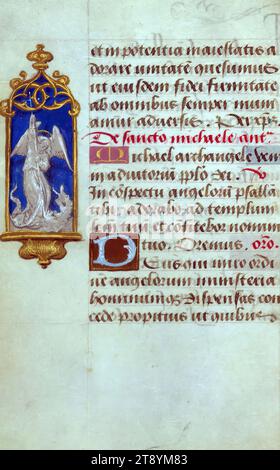 et in potentia maiestatis a
dorare unitatem quesumus
ut eiusdem fidei firmitate
ab omnibus semper muni
amur adversis. Per xpm.
De sancto michaele ant.
Michael archangele veni
in adiutorium pplo dei.
In conspectu angelorum psalla
tibi adorabo ad templum
tuum et confitebor nomini
tuo. Oremus. oro.
Deus qui miro ordi
ne angelorum ministeria
hominumque dispensas con
cede propitius ut quibus
alamy
Image ID: 2T8YM83
www.alamy.com